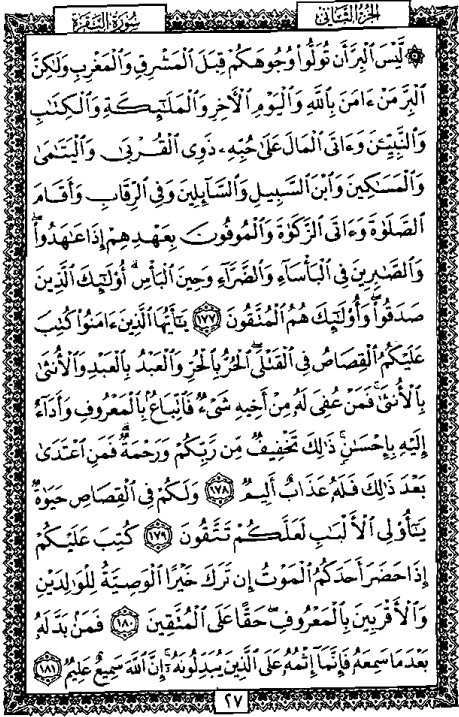 الجزء الثاني
سورة البقرة
۞ لَّيْسَ ٱلْبِرَّ أَن تُوَلُّوا۟ وُجُوهَكُمْ قِبَلَ ٱلْمَشْرِقِ وَٱلْمَغْرِبِ وَلَٰكِنَّ
ٱلْبِرَّ مَنْ ءَامَنَ بِٱللَّهِ وَٱلْيَوْمِ ٱلْأَخِرِ وَٱلْمَلَٰٓئِكَةِ وَٱلْكِتَٰبِ
وَٱلنَّبِيِّـۧنَ وَءَاتَى ٱلْمَالَ عَلَىٰ حُبِّهِۦ ذَوِى ٱلْقُرْبَىٰ وَٱلْيَتَٰمَىٰ
وَٱلْمَسَٰكِينَ وَٱبْنَ ٱلسَّبِيلِ وَٱلسَّآئِلِينَ وَفِى ٱلرِّقَابِ وَأَقَامَ
ٱلصَّلَوٰةَ وَءَاتَى ٱلزَّكَوٰةَ وَٱلْمُوفُونَ بِعَهْدِهِمْ إِذَا عَٰهَدُوا۟ۖ
وَٱلصَّٰبِرِينَ فِى ٱلْبَأْسَآءِ وَٱلضَّرَّآءِ وَحِينَ ٱلْبَأْسِۗ أُو۟لَٰٓئِكَ ٱلَّذِينَ
صَدَقُوا۟ۖ وَأُو۟لَٰٓئِكَ هُمُ ٱلْمُتَّقُونَ ١٧٧ يَٰٓأَيُّهَا ٱلَّذِينَ ءَامَنُوا۟ كُتِبَ
عَلَيْكُمُ ٱلْقِصَاصُ فِى ٱلْقَتْلَىۖ ٱلْحُرُّ بِٱلْحُرِّ وَٱلْعَبْدُ بِٱلْعَبْدِ وَٱلْأُنثَىٰ
بِٱلْأُنثَىٰۚ فَمَنْ عُفِىَ لَهُۥ مِنْ أَخِيهِ شَىْءٌ فَٱتِّبَاعٌۢ بِٱلْمَعْرُوفِ وَأَدَآءٌ
إِلَيْهِ بِإِحْسَٰنٍۗ ذَٰلِكَ تَخْفِيفٌ مِّن رَّبِّكُمْ وَرَحْمَةٌۗ فَمَنِ ٱعْتَدَىٰ
بَعْدَ ذَٰلِكَ فَلَهُۥ عَذَابٌ أَلِيمٌ ١٧٨ وَلَكُمْ فِى ٱلْقِصَاصِ حَيَوٰةٌ
يَٰٓأُو۟لِى ٱلْأَلْبَٰبِ لَعَلَّكُمْ تَتَّقُونَ ١٧٩ كُتِبَ عَلَيْكُمْ
إِذَا حَضَرَ أَحَدَكُمُ ٱلْمَوْتُ إِن تَرَكَ خَيْرًا ٱلْوَصِيَّةُ لِلْوَٰلِدَيْنِ
وَٱلْأَقْرَبِينَ بِٱلْمَعْرُوفِۖ حَقًّا عَلَى ٱلْمُتَّقِينَ ١٨٠ فَمَنۢ بَدَّلَهُۥ
بَعْدَ مَا سَمِعَهُۥ فَإِنَّمَآ إِثْمُهُۥ عَلَى ٱلَّذِينَ يُبَدِّلُونَهُۥٓۚ إِنَّ ٱللَّهَ سَمِيعٌ عَلِيمٌ ١٨١
٢٧